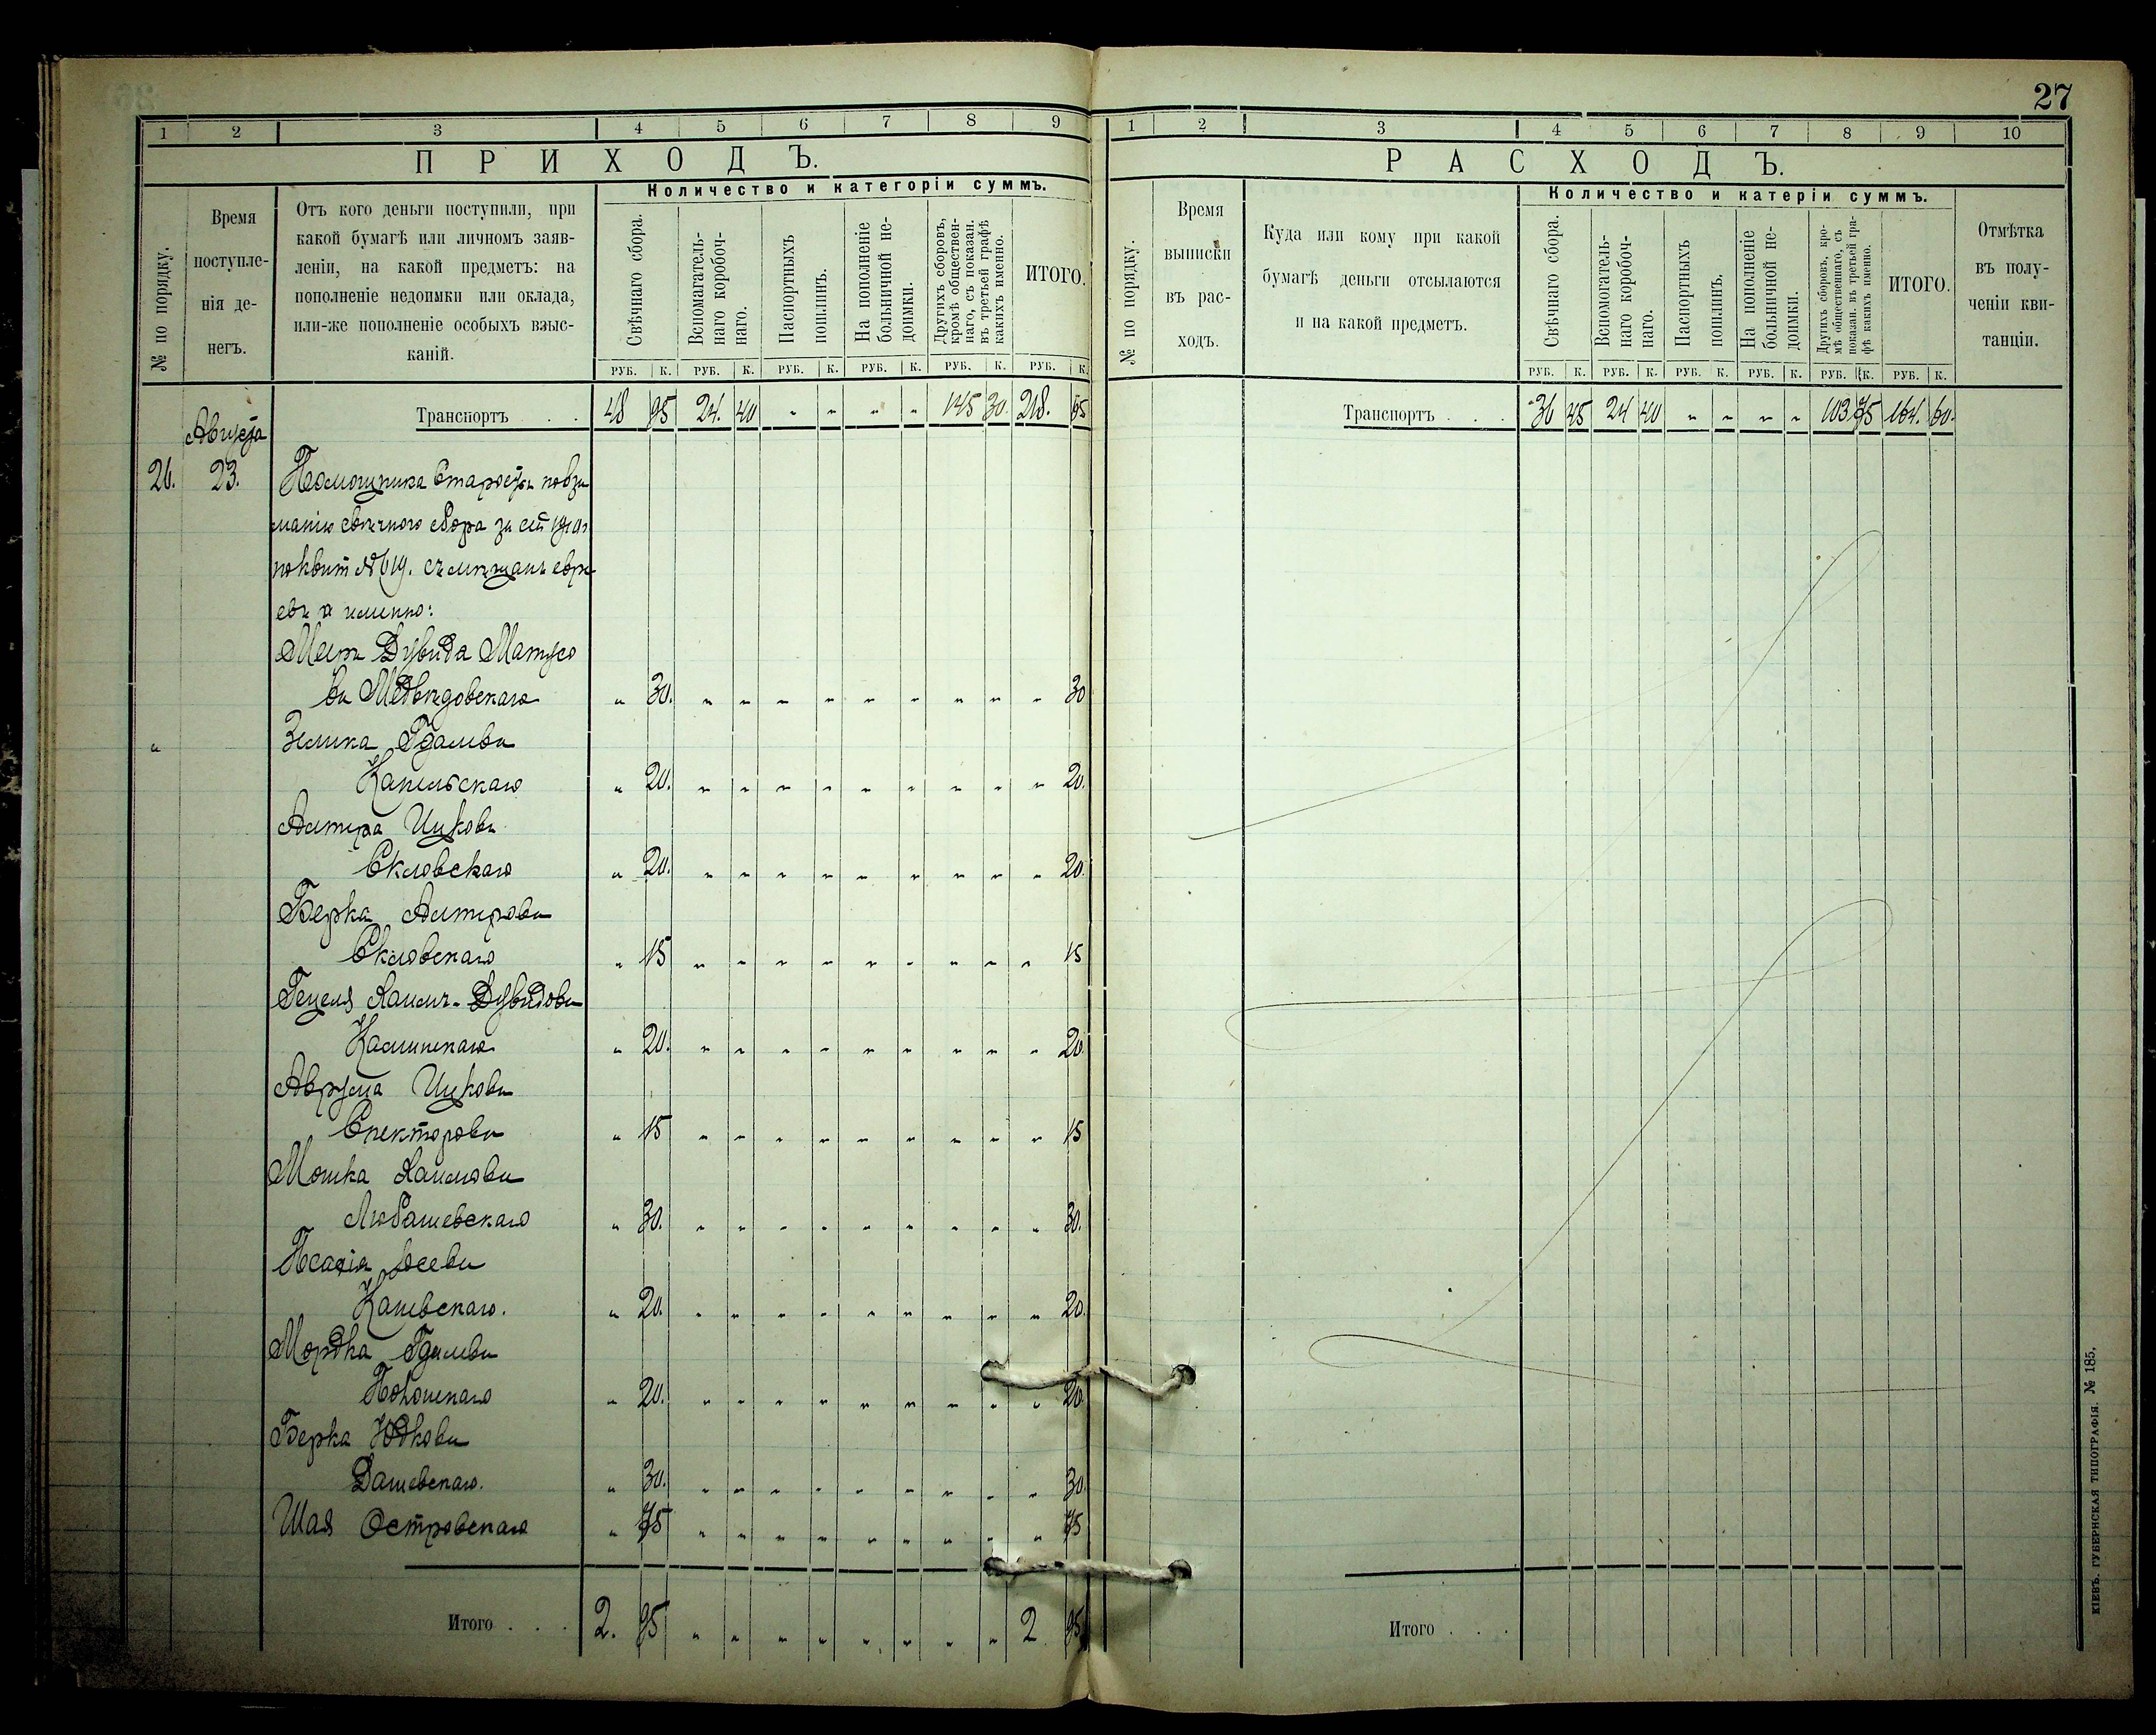 27
1 2 3 4 5 6 7 8 9
ПРИХОДЪ.
Количество и категоріи суммъ.
№ по порядку.
Время поступле-
нія де-
негъ.
Отъ кого деньги поступили, при
какой бумагѣ или личномъ заяв-
леніи, на какой предметъ: на
пополненіе недоимки или оклада,
или-же пополненіе особыхъ взыс-
каній.
Свѣчнаго сбора.
Вспомагатель-
наго коробоч-
наго.
Паспортныхъ
пошлинъ.
На пополненіе
больничной не-
доимки.
Другихъ сборовъ,
кромѣ обществен-
наго, съ показан.
въ третьей графѣ
какихъ именно.
ИТОГО.
РУБ. К. РУБ. К. РУБ. К. РУБ. К. РУБ. К. РУБ. К.
Транспортъ . . 48 95 24. 40 " " " " 145 30. 218. 65
Августа
26. 23. Помощника Старосты по взи
манію свѣчного сбора за
по квит № 619. съ мѣщанъ евре
евъ а именно:
Меира Дувида Матусо
ва Медвѣдовскаго " 30. " " " " " " " " " 30
" Зелика Гдалева
Капельскаго " 20. " " " " " " " " " 20.
Алтера Ицкова
Скловскаго " 20. " " " " " " " " " 20.
Берка Алтерова
Скловскаго " 15 " " " " " " " " " 15
Гецеля Хаимъ-Дувидова
Калинскаго " 20. " " " " " " " " " 20.
Аврума Ицкова
Спекторова " 15 " " " " " " " " " 15
Мошка Хаимова
Любашевскаго " 30. " " " " " " " " " 30.
Каневскаго. " 20. " " " " " " " " " 20.
Мордка Гдалева
" 20. " " " " " " " " " 20.
Берка Юдкова
Дашевскаго. " 30. " " " " " " " " " 30.
Шая Островскаго " 75 " " " " " " " " " 75
Итого . . . 2. 95 " " " " " " " " 2 95
1 2 3 4 5 6 7 8 9 10
РАСХОДЪ.
Количество и катеріи суммъ.
№ по порядку.
Время
выписки
въ рас-
ходъ.
Куда или кому при какой
бумагѣ деньги отсылаются
и на какой предметъ.
Свѣчнаго сбора.
Вспомогатель-
наго коробоч-
наго.
Паспортныхъ
пошлинъ.
На пополненіе
больничной не-
доимки.
Другихъ сборовъ, кро-
мѣ общественнаго, съ
показан. въ третьей гра-
фѣ какихъ именно.
ИТОГО.
Отмѣтка
въ полу-
ченіи кви-
танціи.
РУБ. К. РУБ. К. РУБ. К. РУБ. К. РУБ. К. РУБ. К.
Транспортъ . . 36 45 24 40 " " " " 103 75 164. 60.
Итого . . .
КІЕВЪ. ГУБЕРНСКАЯ ТИПОГРАФІЯ. № 185.